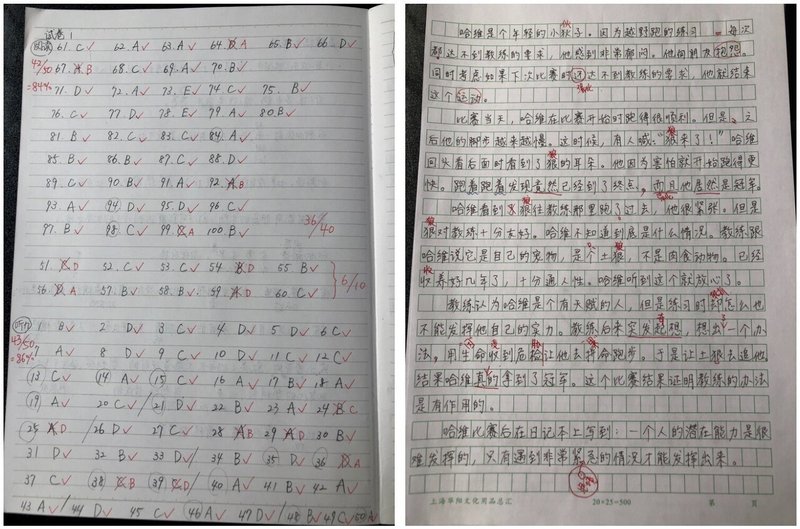 试卷1
阅读 61. C✓ 62. A✓ 63. A✓ 64. A 65. B✓ 66. D✓
42/50 67. B 68. C✓ 69. A✓ 70. B✓
=84% 71. D✓ 72. A✓ 73. E✓ 74. C✓ 75. B✓
76. C✓ 77. D✓ 78. E✓ 79. A✓ 80. B✓
81. B✓ 82. C✓ 83. C✓ 84. A✓
85. B✓ 86. B✓ 87. C✓ 88. D✓
89. C✓ 90. B✓ 91. A✓ 92. B
93. A✓ 94. D✓ 95. D✓ 96. C✓
97. B✓ 98. C✓ 99. A 100 B✓
36/40
51. D 52. C✓ 53. C✓ 54. D 55 B✓
56. A 57. B✓ 58. B✓ 59. D 60 C✓
6/10
听力 1 B✓ 2 D✓ 3 C✓ 4 D✓ 5 D✓ 6 C✓
43/50
=86% 7 A✓ 8 D✓ 9 C✓ 10 D✓ 11 C✓ 12 C✓
13 C✓ 14 A✓ 15 C✓ 16 A✓ 17 B✓ 18 A✓
19 A✓ 20 C✓ 21 D✓ 22 B✓ 23 A✓ 24 C
25 D 26 D✓ 27 C✓ 28 B 29 D 30 B✓
31 D✓ 32 B✓ 33 D✓ 34 B✓ 35 D✓ 36 A
37 C✓ 38 B 39 D 40 A✓ 41 B✓ 42 A✓
43 A✓ 44 D✓ 45 C✓ 46 A✓ 47 D✓ 48 B✓ 49 C✓ 50 A✓
哈维是个年轻的小伙子。因为越野跑的练习,每次
都达不到教练的要求,他感到非常郁闷。他向朋友抱怨。
同时考虑如果下次比赛时还达不到教练的要求,他就结束
这个运动。
比赛当天,哈维在比赛开始时跑得很顺利。但是,之
后他的脚步越来越慢。这时候,有人喊:“狼来了!”哈维
回头看后面时看到了狼的耳朵。他因为害怕就开始跑得更
快。跑着跑着发现竟然已经到了终点,而且他居然是冠军。
哈维看到狼往教练那里跑了过去,他很紧张。但是
狼对教练十分友好。哈维不知道到底是什么情况。教练跟
哈维说它是自己的宠物,是个土狼,不是肉食动物。已经
收养好几年了,十分通人性。哈维听到这个就放心了。
教练认为哈维是个有天赋的人,但是练习时却怎么也
不能发挥他自己的实力。教练后来突发起想,想出一个办
法,用生命收到危险让他去拼命跑步。于是让土狼去追他
结果哈维真的拿到了冠军。这个比赛结果证明教练的办法
是有作用的。
哈维比赛后在日记本上写到:一个人的潜在能力是很
难发挥的,只有遇到非常紧急的情况才能发挥出来。
上海华阳文化用品总汇 20×25=500 第 页